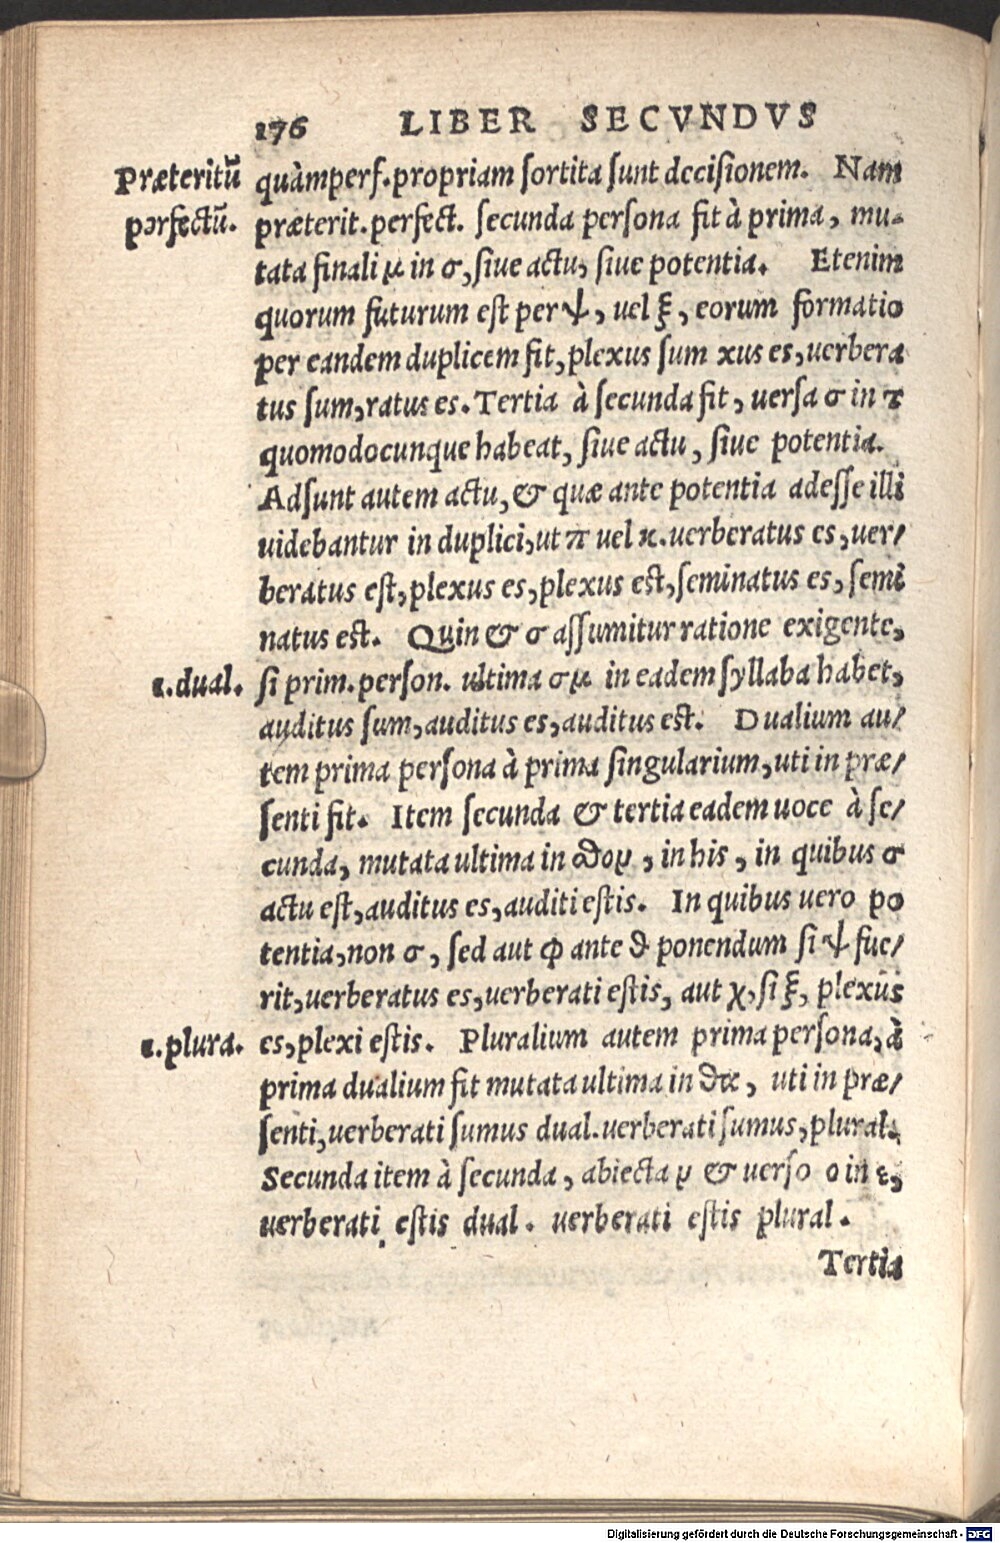 176 LIBER SECVNDVS
Præteritū
perfectū.
quàmperf. propriam sortita sunt decisionem. Nam
præterit. perfect. secunda persona fit à prima, mu-
tata finali μ in σ, siue actu, siue potentia. Etenim
quorum futurum est per ψ, uel ξ, eorum formatio
per eandem duplicem fit, plexus sum xus es, uerbera
tus sum, ratus es. Tertia à secunda fit, uersa σ in τ
quomodocunque habeat, siue actu, siue potentia.
Adsunt autem actu, & quæ ante potentia adesse illi
uidebantur in duplici, ut π uel κ. uerberatus es, uer/
beratus est, plexus es, plexus est, seminatus es, semi
natus est. Quin & σ assumitur ratione exigente,
1. dual. si prim. person. ultima σμ in eadem syllaba habet,
auditus sum, auditus es, auditus est. Dualium au/
tem prima persona à prima singularium, uti in præ/
senti fit. Item secunda & tertia eadem uoce à se/
cunda, mutata ultima in ϑον, in his, in quibus σ
actu est, auditus es, auditi estis. In quibus uero po
tentia, non σ, sed aut φ ante ϑ ponendum si ψ fue/
rit, uerberatus es, uerberati estis, aut χ, si ξ, plexus
1. plura. es, plexi estis. Pluralium autem prima persona, à
prima dualium fit mutata ultima in ϑα, uti in præ/
senti, uerberati sumus dual. uerberati sumus, plural.
Secunda item à secunda, abiecta ν & uerso ο in ε,
uerberati estis dual. uerberati estis plural.
Tertia
Digitalisierung gefördert durch die Deutsche Forschungsgemeinschaft - DFG